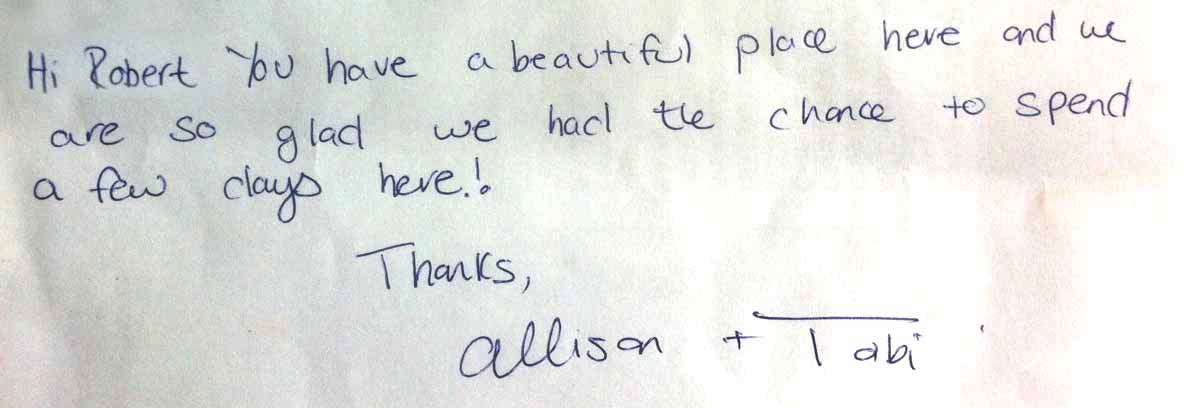 Hi Robert You have a beautiful place here and we
are so glad we had the chance to spend
a few days here!
Thanks,
Allison + Tabi